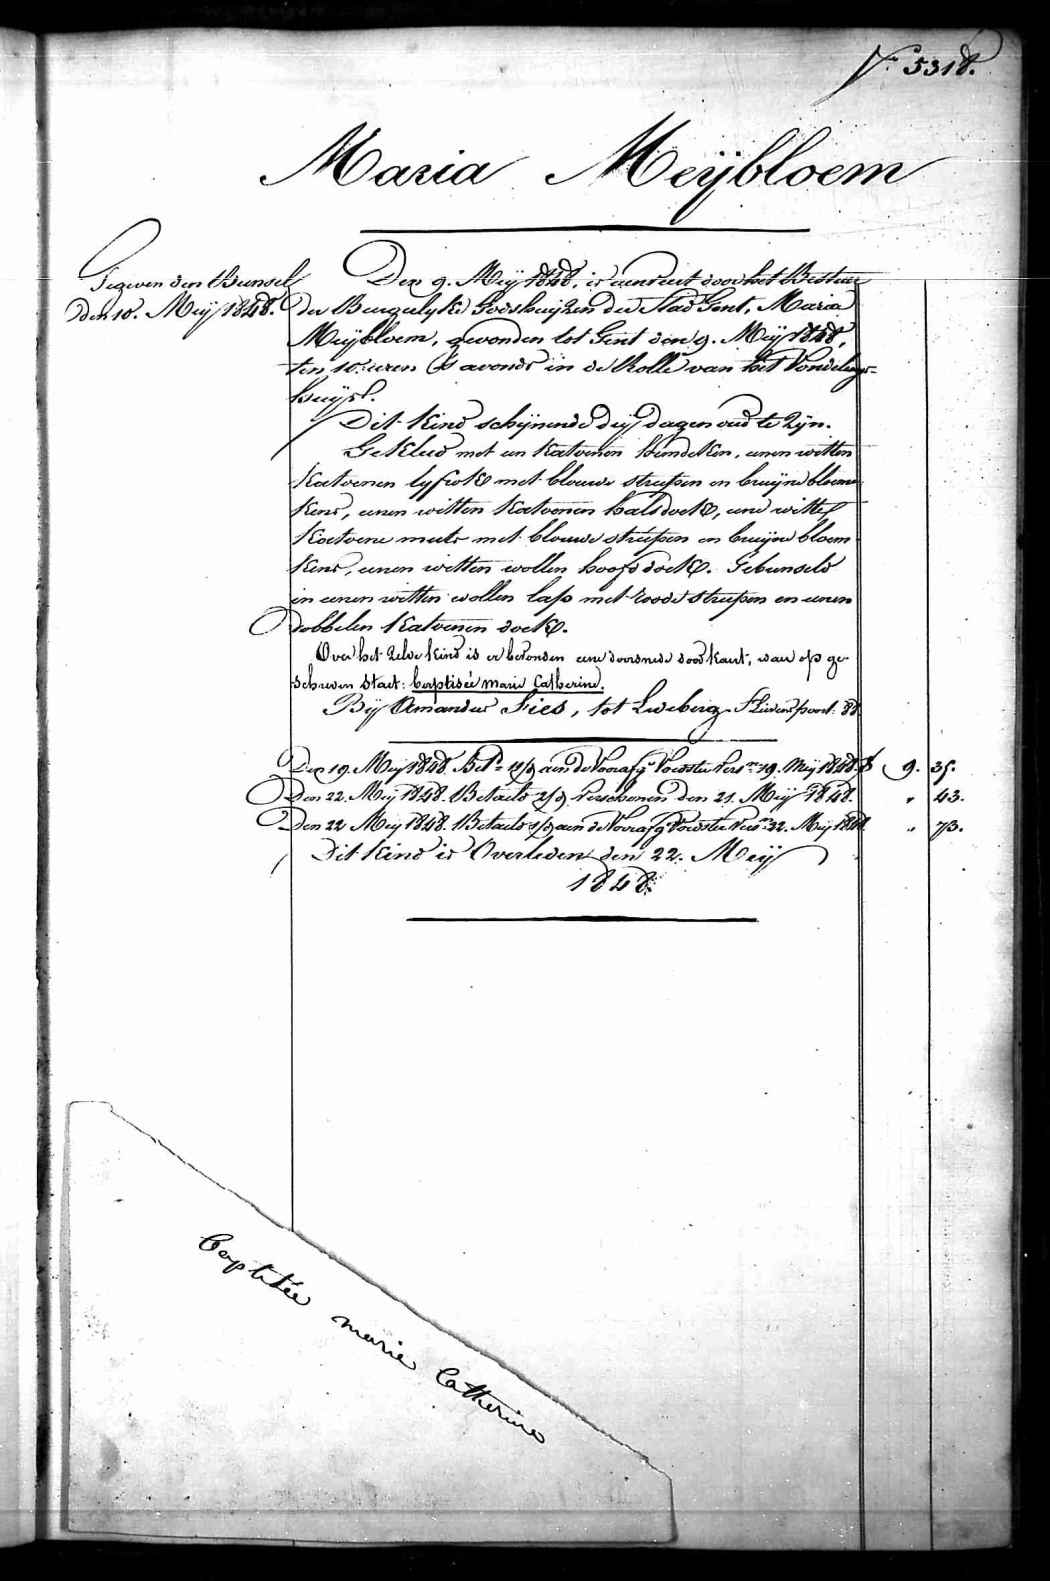 N.º 5318.
Maria Meÿbloem
Gegeven den Bunsel
den 10. Meÿ 1848.
Den 9. Meÿ 1848, is aenveert door het Bestuur
der Burgerlyke Godshuÿzen der Stad Gent, Maria
Meÿbloem, gevonden tot Gent den 9. Meÿ 1848,
ten 10. uren 's avonds in de Rolle van het Vondelings-
huÿs.
Dit kind schÿnende drÿ dagen oud te zÿn.
Gekleed met een katoenen hemdeken, eenen witten
katoenen lyfrok met blauwe streepen en bruÿne bloem-
kens, eenen witten katoenen halsdoek, eene witte
katoene muts met blauwe streepen en bruÿne bloem-
kens, eenen witten wollen hoofddoek. Gebunseld
in eenen witten wollen lap met roode streepen en eenen
dobbelen katoenen doek.
Over het zelve kind is er bevonden eene doorsnede kaert, waer op ge-
schreven staet: baptisée marie Catherine.
Bÿ Amandus Fies, tot Ledeberg St. Lievens poort
Den 19. Meÿ 1848. aen de Voorsz. Voedster 19. Meÿ 1848. 9. 35.
Den 22. Meÿ 1848. Betaeld verschenen den 21. Meÿ 1848. " 43.
Den 22 Meÿ 1848. Betaeld aen de Voorsz. Voedster 22. Meÿ 1848. " 73.
Dit kind is Overleden den 22. Meÿ
1848.
baptisée marie Catherine